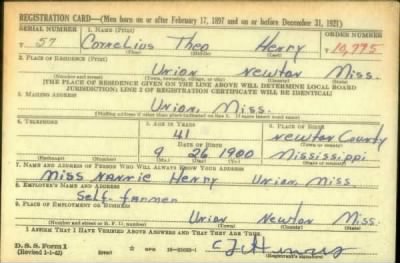 REGISTRATION CARD—(Men born on or after February 17, 1897 and on or before December 31, 1921)
SERIAL NUMBER 1. NAME (Print) ORDER NUMBER
T 57 Cornelius Theo Henry 10,775
(First) (Middle) (Last)
2. PLACE OF RESIDENCE (Print)
Union Newton Miss.
(Number and street) (Town, township, village, or city) (County) (State)
[THE PLACE OF RESIDENCE GIVEN ON THE LINE ABOVE WILL DETERMINE LOCAL BOARD
JURISDICTION; LINE 2 OF REGISTRATION CERTIFICATE WILL BE IDENTICAL]
3. MAILING ADDRESS
Union, Miss.
[Mailing address if other than place indicated on line 2. If same insert word same]
4. TELEPHONE 5. AGE IN YEARS 6. PLACE OF BIRTH
41 Newton County
DATE OF BIRTH (Town or county)
9 26 1900 Mississippi
(Exchange) (Number) (Mo.) (Day) (Yr.) (State or country)
7. NAME AND ADDRESS OF PERSON WHO WILL ALWAYS KNOW YOUR ADDRESS
Miss Nannie Henry Union, Miss
8. EMPLOYER'S NAME AND ADDRESS
Self-farmer
9. PLACE OF EMPLOYMENT OR BUSINESS
Union Newton Miss.
(Number and street or R. F. D. number) (Town) (County) (State)
I AFFIRM THAT I HAVE VERIFIED ABOVE ANSWERS AND THAT THEY ARE TRUE.
D. S. S. Form 1
(Revised 1-1-42) C T Henry
(Registrant's signature)